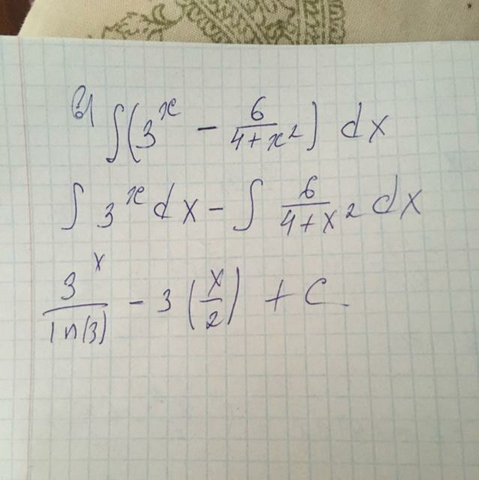 в) ∫(3^x − 6/(4+x²)) dx
∫ 3^x dx − ∫ 6/(4+x²) dx
3^x/ln(3) − 3(x/2) + C